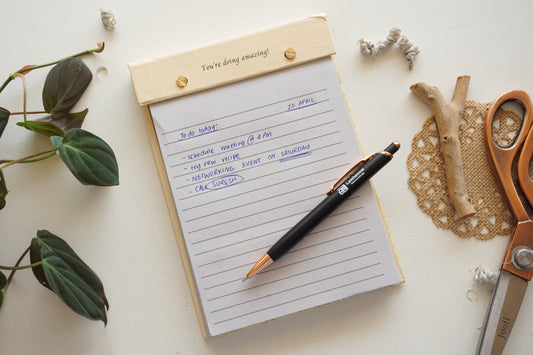 You're doing amazing!
25 APRIL
To do today:
- schedule meeting @ 4 pm
- try new recipe
- NETWORKING EVENT ON SATURDAY
- CALL SURESH